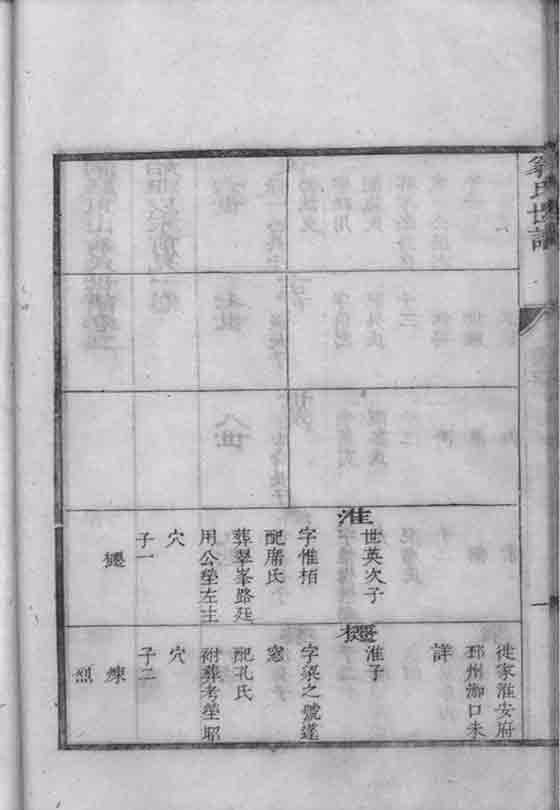 翁氏世譜
一
淮
世英次子
字惟栢
配席氏
葬翠峯路廷
用公塋左主
穴
子一
櫏
徙家淮安府
邳州泇口未
詳
櫏
淮子
字梁之號蓬
窓
配孔氏
祔葬考塋昭
穴
子二
煉
烈